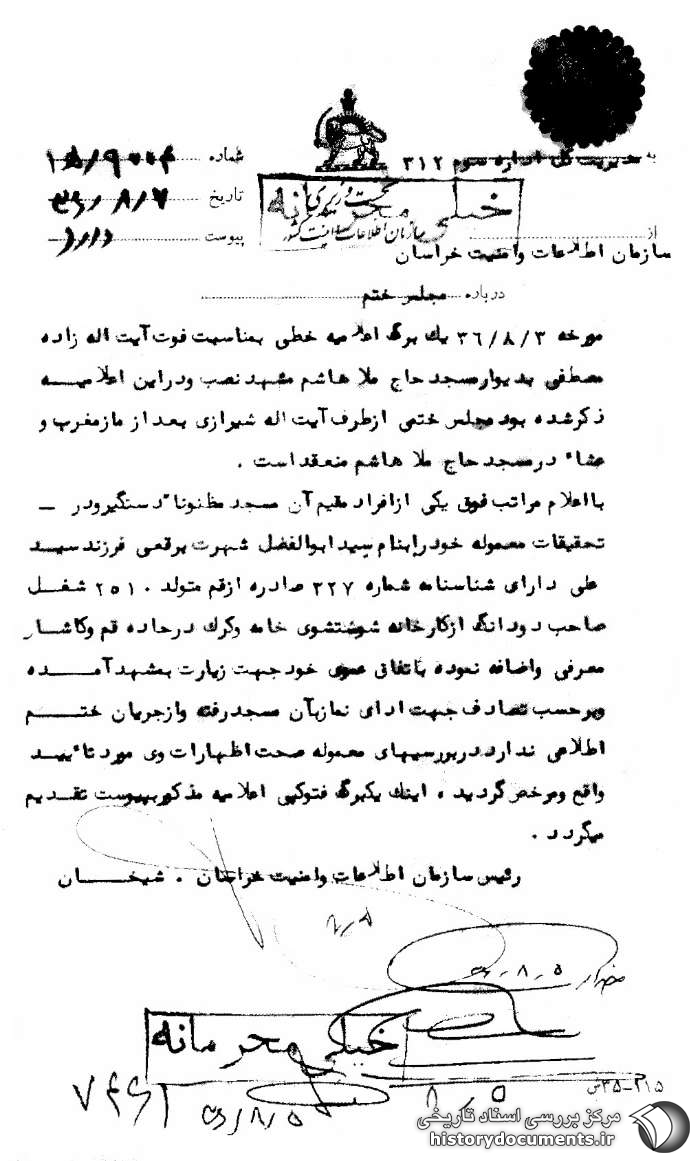 به مدیریت کل اداره سوم ۳۱۲
شماره ۱۵/۹۰۰۴
از سازمان اطلاعات وامنیت خراسان
تاریخ ۳۶/۸/۷
پیوست دارد
نخست وزیری
سازمان اطلاعات و امنیت کشور
خیلی محرمانه
درباره مجلس ختم
مورخه ۳۶/۸/۳ یك برگ اعلامیه خطی بمناسبت فوت آیت اله زاده
مصطفی بدیوار مسجد حاج ملا هاشم مشهد نصب ودراین اعلامیـــه
ذکرشده بود مجلس ختمی ازطرف آیت اله شیرازی بعد از مازمغرب و
عشاء درمسجد حاج ملا هاشم منعقد است .
بااعلام مراتب فوق یکی ازافراد مقیم آن مسجد مظنونا" دستگیرودر –
تحقیقات معموله خودرابنام سیدابوالفضل شهرت برقعی فرزند سیــد
علی دارای شناسنامه شماره ۳۲۷ صادره ازقم متولد ۲۵۱۰ شغــل
صاحب دودانگ ازکارخانه شوشتشوی خامه وکرك درجاده قم وکاشـار
معرفی واضافه نموده باتفاق عموی خود جهت زیارت بمشهد آمـــده
وبرحسب تصادف جهت ادای نمازبآن مسجد رفته وازجریان ختـــم
اطلاعی ندارد دربررسیهای معموله صحت اظهارات وی مورد تائیــد
واقع ومرخص گردید ، اینك یکبرگ فتوکپی اعلامیه مذکوربپیوست تقـدیم
میگردد .
رئیس سازمان اطلاعات وامنیت خراسان . شیخــــان
۸/۵
۳۶/۸/۵
خیلی محرمانه
۸/۵
۳۶/۸/۵
۲۱۵-۳۵ش
مرکز بررسی اسناد تاریخی
historydocuments.ir